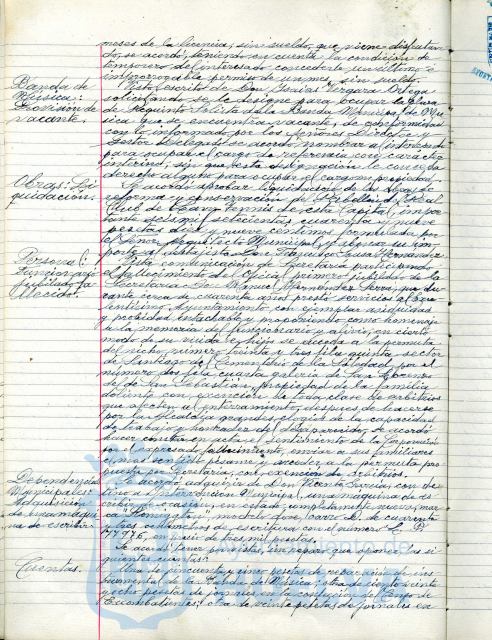 meses de la licencia, sin sueldo, que viene disfrutan-
do, se acordó, teniendo en cuenta la condición de
temporero del interesado, concederle un último e
improrrogable permiso de un mes, sin sueldo.
Banda de
Música:
Provisión de
vacante.
Visto escrito de Don Isaías Vergara Ortega
solicitando se le designe para ocupar la plaza
de Requinto de la Banda Municipal de Mú-
sica que se encuentra vacante, de conformidad
con lo informado por los Señores Director y
Gestor Delegado se acordó nombrar al interesado
para ocupar el cargo de referencia con carácter
interino, sin que esta designación le conceda
derecho alguno para ocupar el cargo en propiedad.
Obras: Li-
quidación.
Se acordó aprobar liquidación de las obras de
reforma y conservación del Pabellón del Real
Club de Lawn Tennis de esta Capital, impor-
tante seis mil setecientas cuarenta y nueve
pesetas diez y nueve céntimos formulada por
el Señor Arquitecto Municipal, y abonar su im-
porte al contratista Don Francisco Hernández
Personal:
Funcionario
jubilado fa-
llecido.
Vista comunicación de Secretaría participando
el fallecimiento del Oficial primero jubilado de la
Secretaría Don Manuel Hernández Serra, que du-
rante cerca de cuarenta años prestó servicios al Exce-
lentísimo Ayuntamiento con ejemplar asiduidad
y probidad intachable, y proponiendo como homenaje
a la memoria del funcionario y alivio, en cierto
modo de su viuda e hijos se acceda a la permuta
del nicho número treinta y tres fila quinta sector
de Santiago del Cementerio de la Soledad, por el
número dos fila cuarta galería de San Lorenzo
del de San Sebastián, propiedad de la familia
doliente con exención de toda clase de arbitrios
que afecten al enterramiento, después de hacerse
por la Alcaldía grandes elogios de la capacidad
de trabajo y honradez del desaparecido, se acordó
hacer constar en acta el sentimiento de la Corporación
por el expresado fallecimiento, enviar a sus familiares
el más sentido pésame y acceder a la permuta pro-
puesta por Secretaría, con exención de arbitrios.
Dependencias
Municipales:
Adquisición
de una máqui-
na de escribir.
Se acordó adquirir de Don Vicente García con des-
tino a Intervención Municipal, una máquina de es-
cribir de ocasión, en estado completamente nuevo, mar-
ca carro D. de cuarenta
y tres centímetros de escritura con el número
77976, en precio de tres mil pesetas.
Cuentas.
Se acordó tener por vistas, sin reparo que oponer, las si-
guientes cuentas:
Una de cincuenta y cinco pesetas de reparación de ins-
trumental de la Banda de Música; otra de ciento veinte
y ocho pesetas de jornales en la confección del Censo de
Excombatientes; otra de veinte pesetas de jornales en